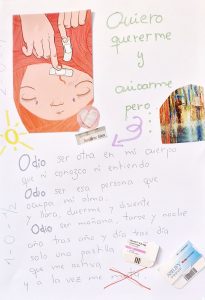 Quiero
quererme
y
cuidarme
pero
Odio ser otra en mi cuerpo
que ni conozco ni entiendo
Odio ser esa persona que
ocupa mi alma
y llora, duerme y disiente
Odio ser mañana, tarde y noche
año tras año y día tras día
solo una pastilla
que me activa
y a la vez me